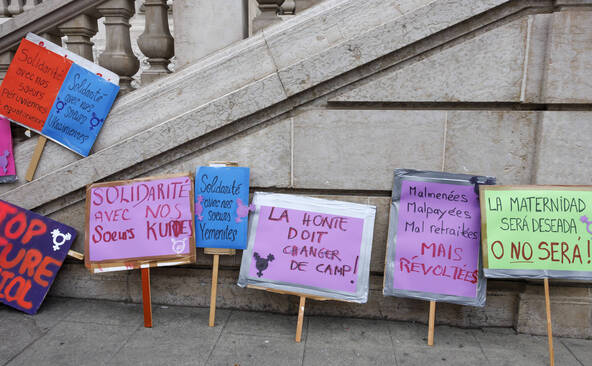 Solidarité
avec nos
soeurs
Péruviennes
équatoriennes
Solidarité
avec nos
soeurs
Ukrainiennes
TOP
TURE
SOLIDARITÉ
AVEC NOS
Soeurs KURDES
Solidarité
avec nos
soeurs
Yemenites
LA HONTE
DOIT
CHANGER
DE CAMP!
Malmenées
Malpayées
Mal retraitées
MAIS
RÉVOLTÉES
LA MATERNIDAD
SERÁ DESEADA
O NO SERÁ!